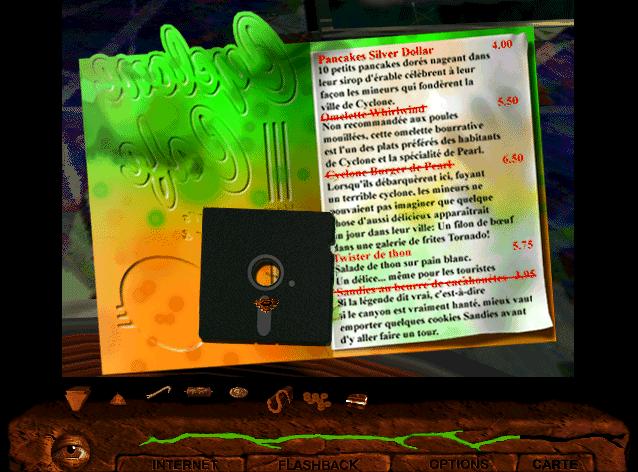 Cyclone
Cafe
Pancakes Silver Dollar 4.00
10 petits pancakes dorés nageant dans
leur sirop d'érable célèbrent à leur
façon les mineurs qui fondèrent la
ville de Cyclone.
Omelette Whirlwind 5.50
Non recommandée aux poules
mouillées, cette omelette bourrative
est l'un des plats préférés des habitants
de Cyclone et la spécialité de Pearl.
Cyclone Burger de Pearl 6.50
Lorsqu'ils débarquèrent ici, fuyant
un terrible cyclone, les mineurs ne
ouvaient pas imaginer que quelque
hose d'aussi délicieux apparaîtrait
n jour dans leur ville: Un filon de bœuf
dans une galerie de frites Tornado!
Twister de thon 5.75
Salade de thon sur pain blanc.
Un délice... même pour les touristes
Sandies au beurre de cacahouètes 3.95
Si la légende dit vrai, c'est-à-dire
si le canyon est vraiment hanté, mieux vaut
emporter quelques cookies Sandies avant
d'y aller faire un tour.
INTERNET
FLASHBACK
OPTIONS
CARTE